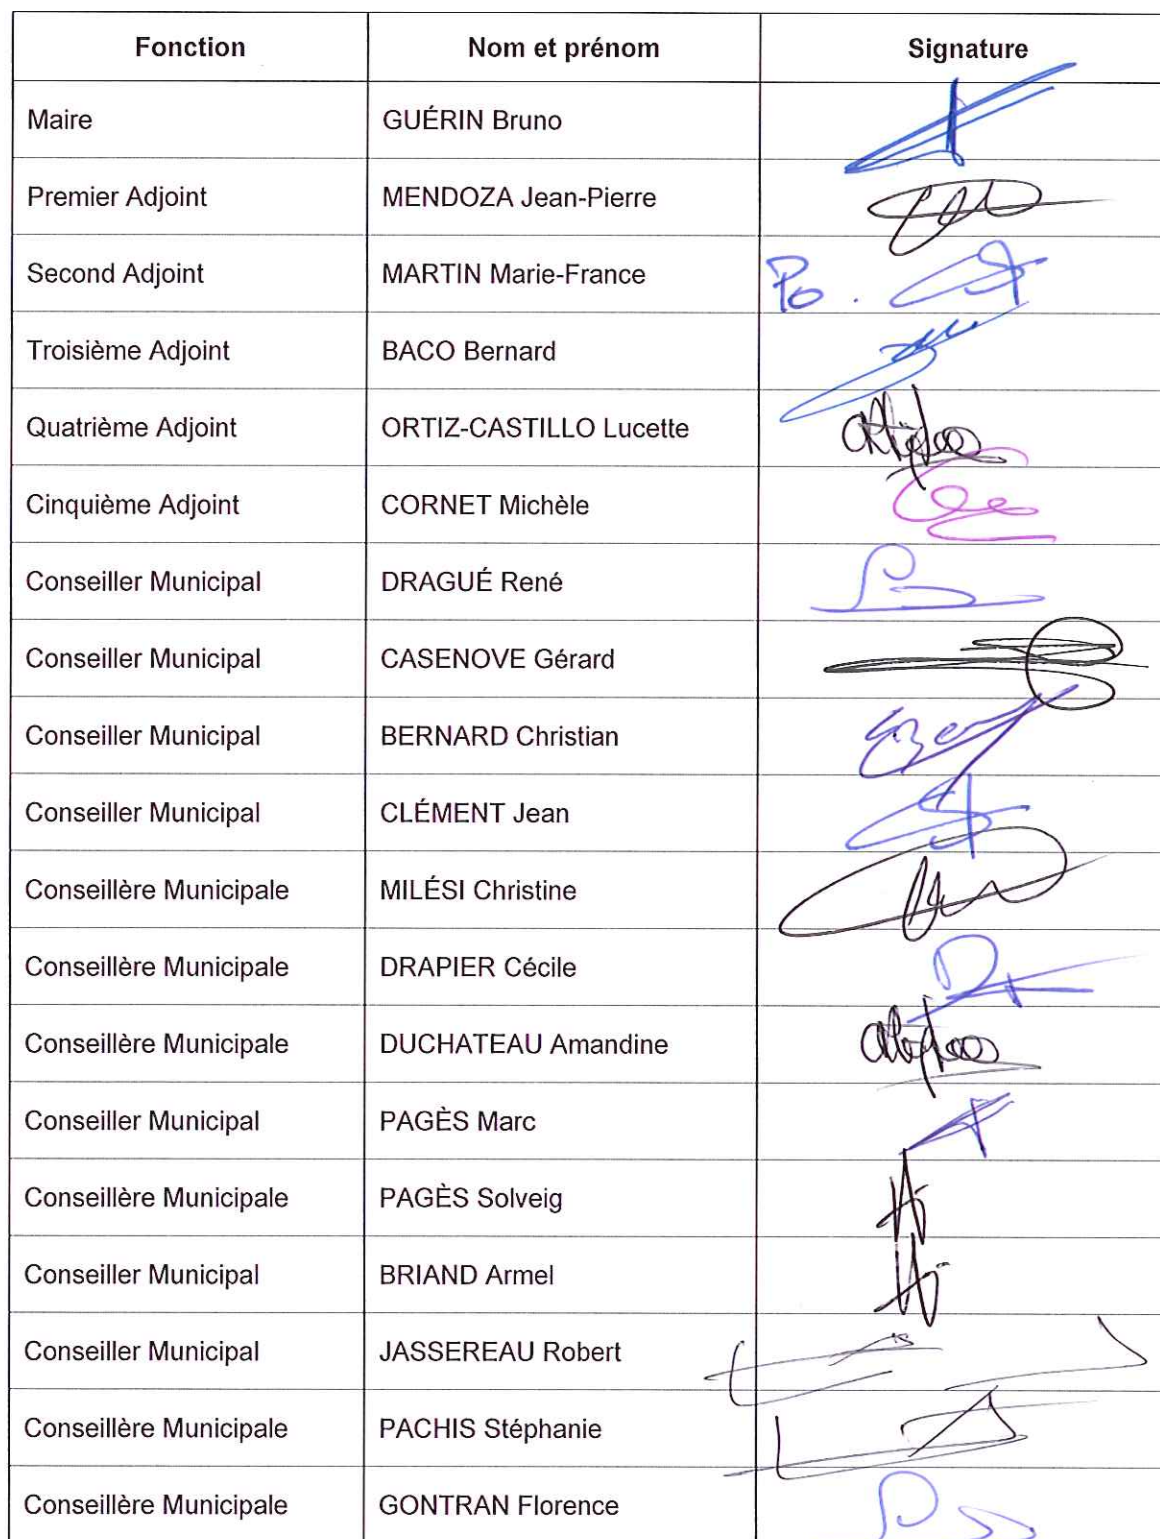 Fonction Nom et prénom Signature
Maire GUÉRIN Bruno
Premier Adjoint MENDOZA Jean-Pierre
Second Adjoint MARTIN Marie-France Po.
Troisième Adjoint BACO Bernard
Quatrième Adjoint ORTIZ-CASTILLO Lucette
Cinquième Adjoint CORNET Michèle
Conseiller Municipal DRAGUÉ René
Conseiller Municipal CASENOVE Gérard
Conseiller Municipal BERNARD Christian
Conseiller Municipal CLÉMENT Jean
Conseillère Municipale MILÉSI Christine
Conseillère Municipale DRAPIER Cécile
Conseillère Municipale DUCHATEAU Amandine
Conseiller Municipal PAGÈS Marc
Conseillère Municipale PAGÈS Solveig
Conseiller Municipal BRIAND Armel
Conseiller Municipal JASSEREAU Robert
Conseillère Municipale PACHIS Stéphanie
Conseillère Municipale GONTRAN Florence